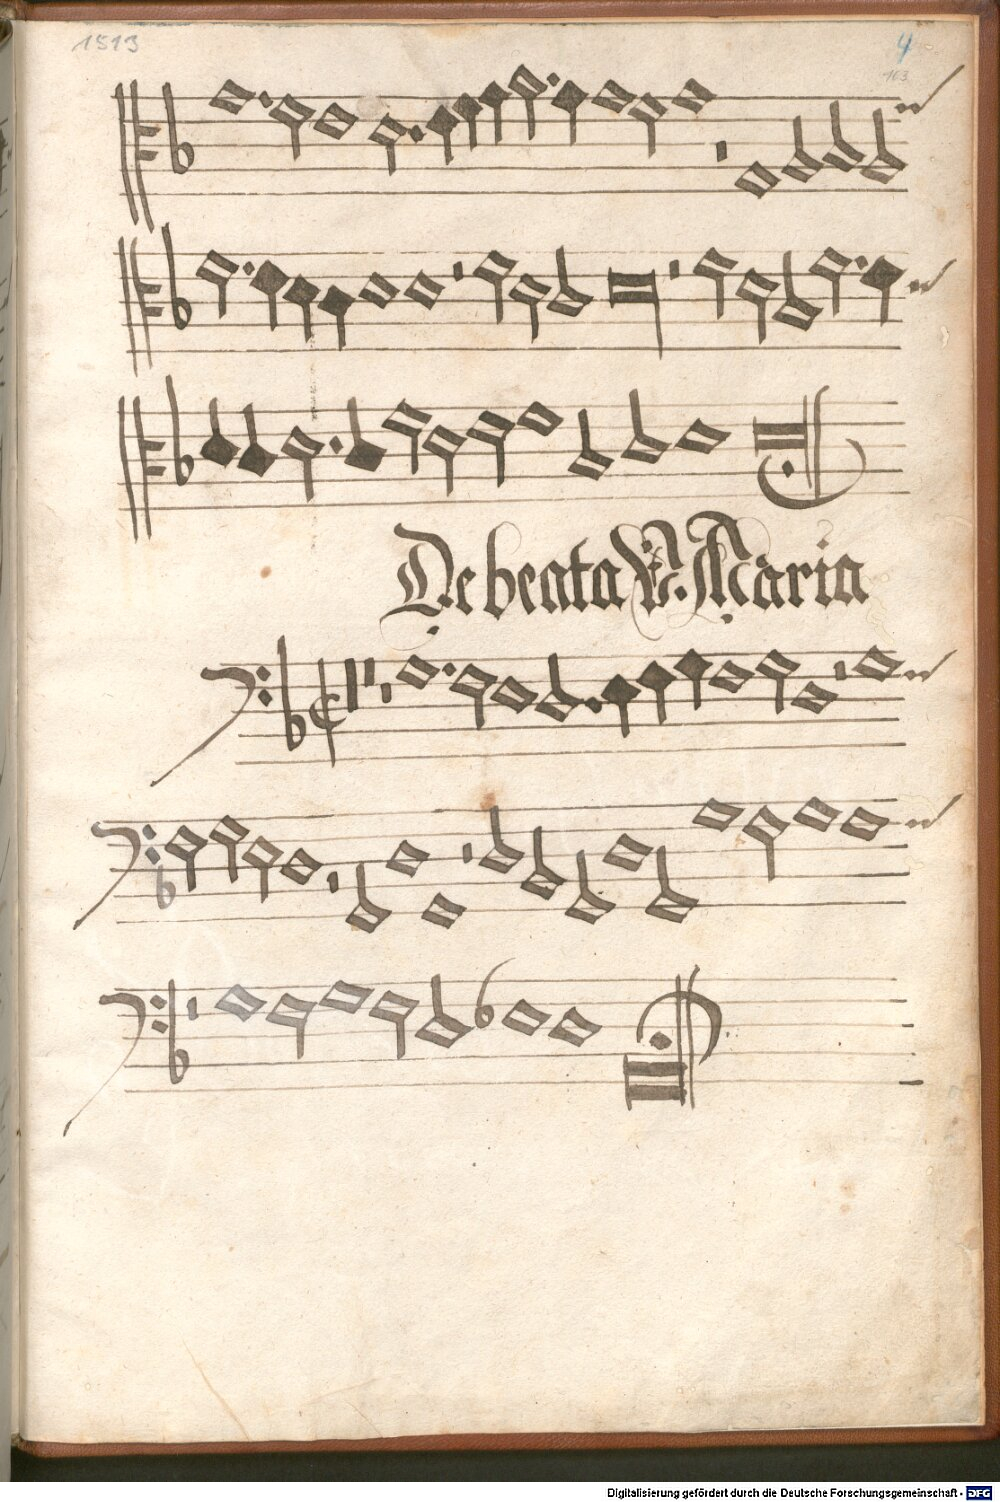 1513
4
163
De beata V. Maria
Digitalisierung gefördert durch die Deutsche Forschungsgemeinschaft - DFG